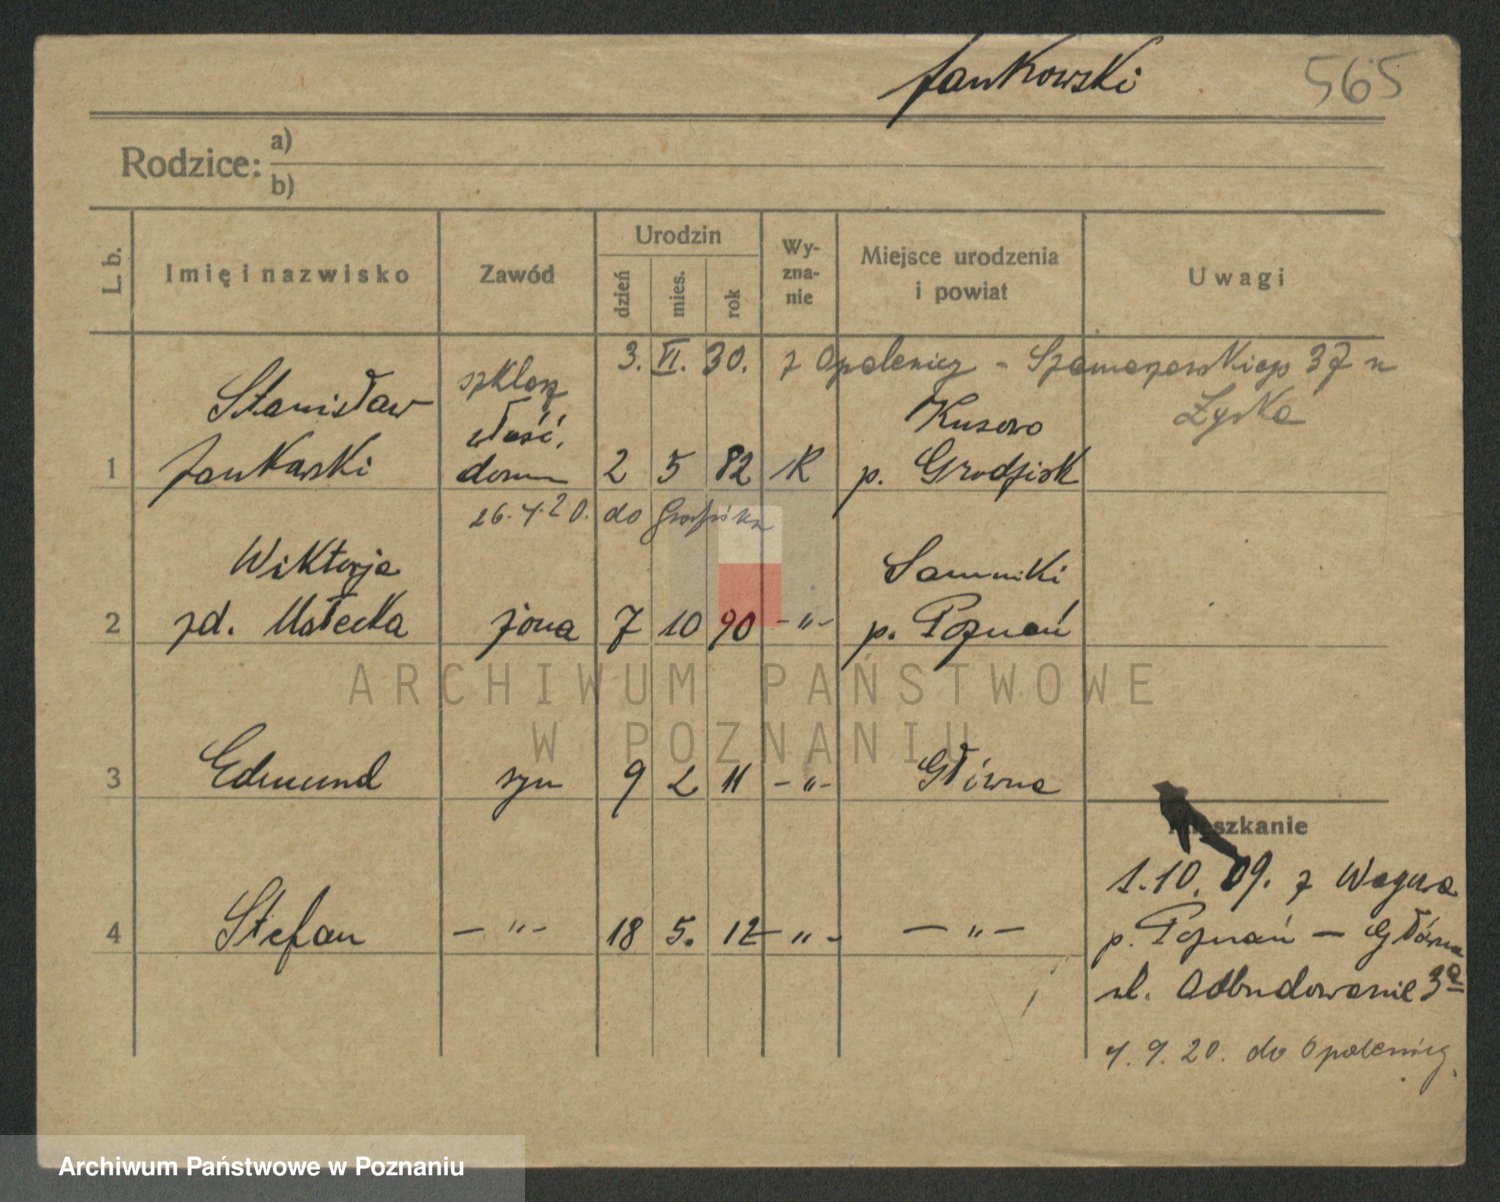 Jankowski 565
Rodzice: a)
b)
L. b. Imię i nazwisko Zawód Urodzin dzień mies. rok Wy-zna-nie Miejsce urodzenia i powiat Uwagi
3. VI. 30. z Opalenicy - 37
Stanisław
Kusowo
właść.
1 Jankoski 2 5 82 K p. Grodzisk
26. 4. 20. do Grodziska
Wiktorja Samniki
2 zd. Małecka żona 7 10 90 -"- p. Poznań
ARCHIWUM PAŃSTWOWE
W POZNANIU
3 Edmund syn 9 2 11 -"- Główna
Mieszkanie
1.10.09. z
4 Stefan -"- 18 5. 12 -"- -"-
p. Poznań - Główna
ul. Odbudowanie 3a
4. 9. 20. do Opalenicy
Archiwum Państwowe w Poznaniu